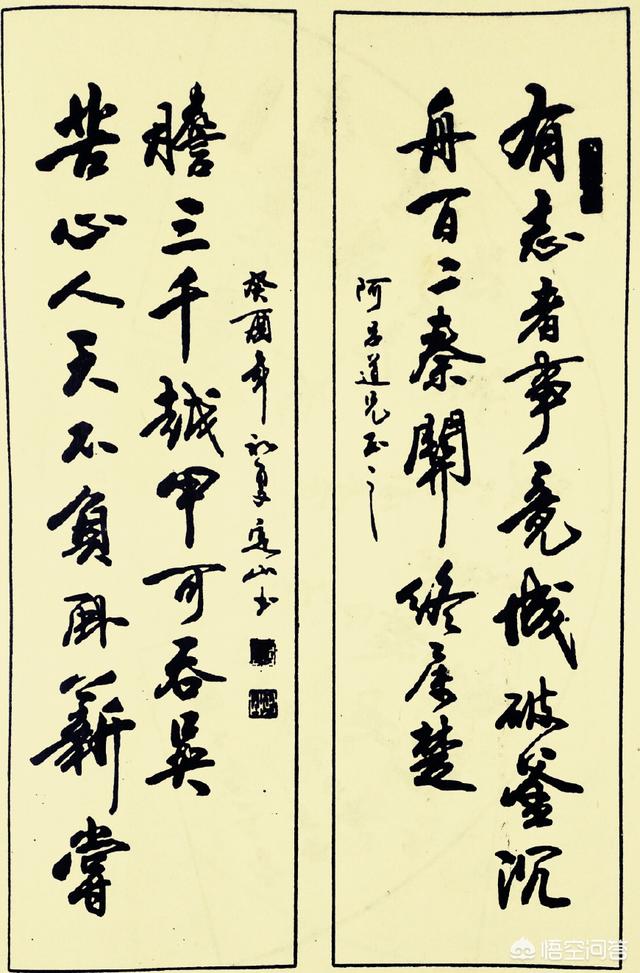 有志者事竟成破釜沉
舟百二秦關終屬楚
阿道兄正之
苦心人天不負卧薪嘗
膽三千越甲可吞吳
癸酉年初夏定山書
悟空问答